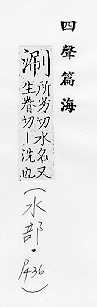 四聲篇海
涮
所劣切水名又
生眷切丨洗也
(水部.P436)